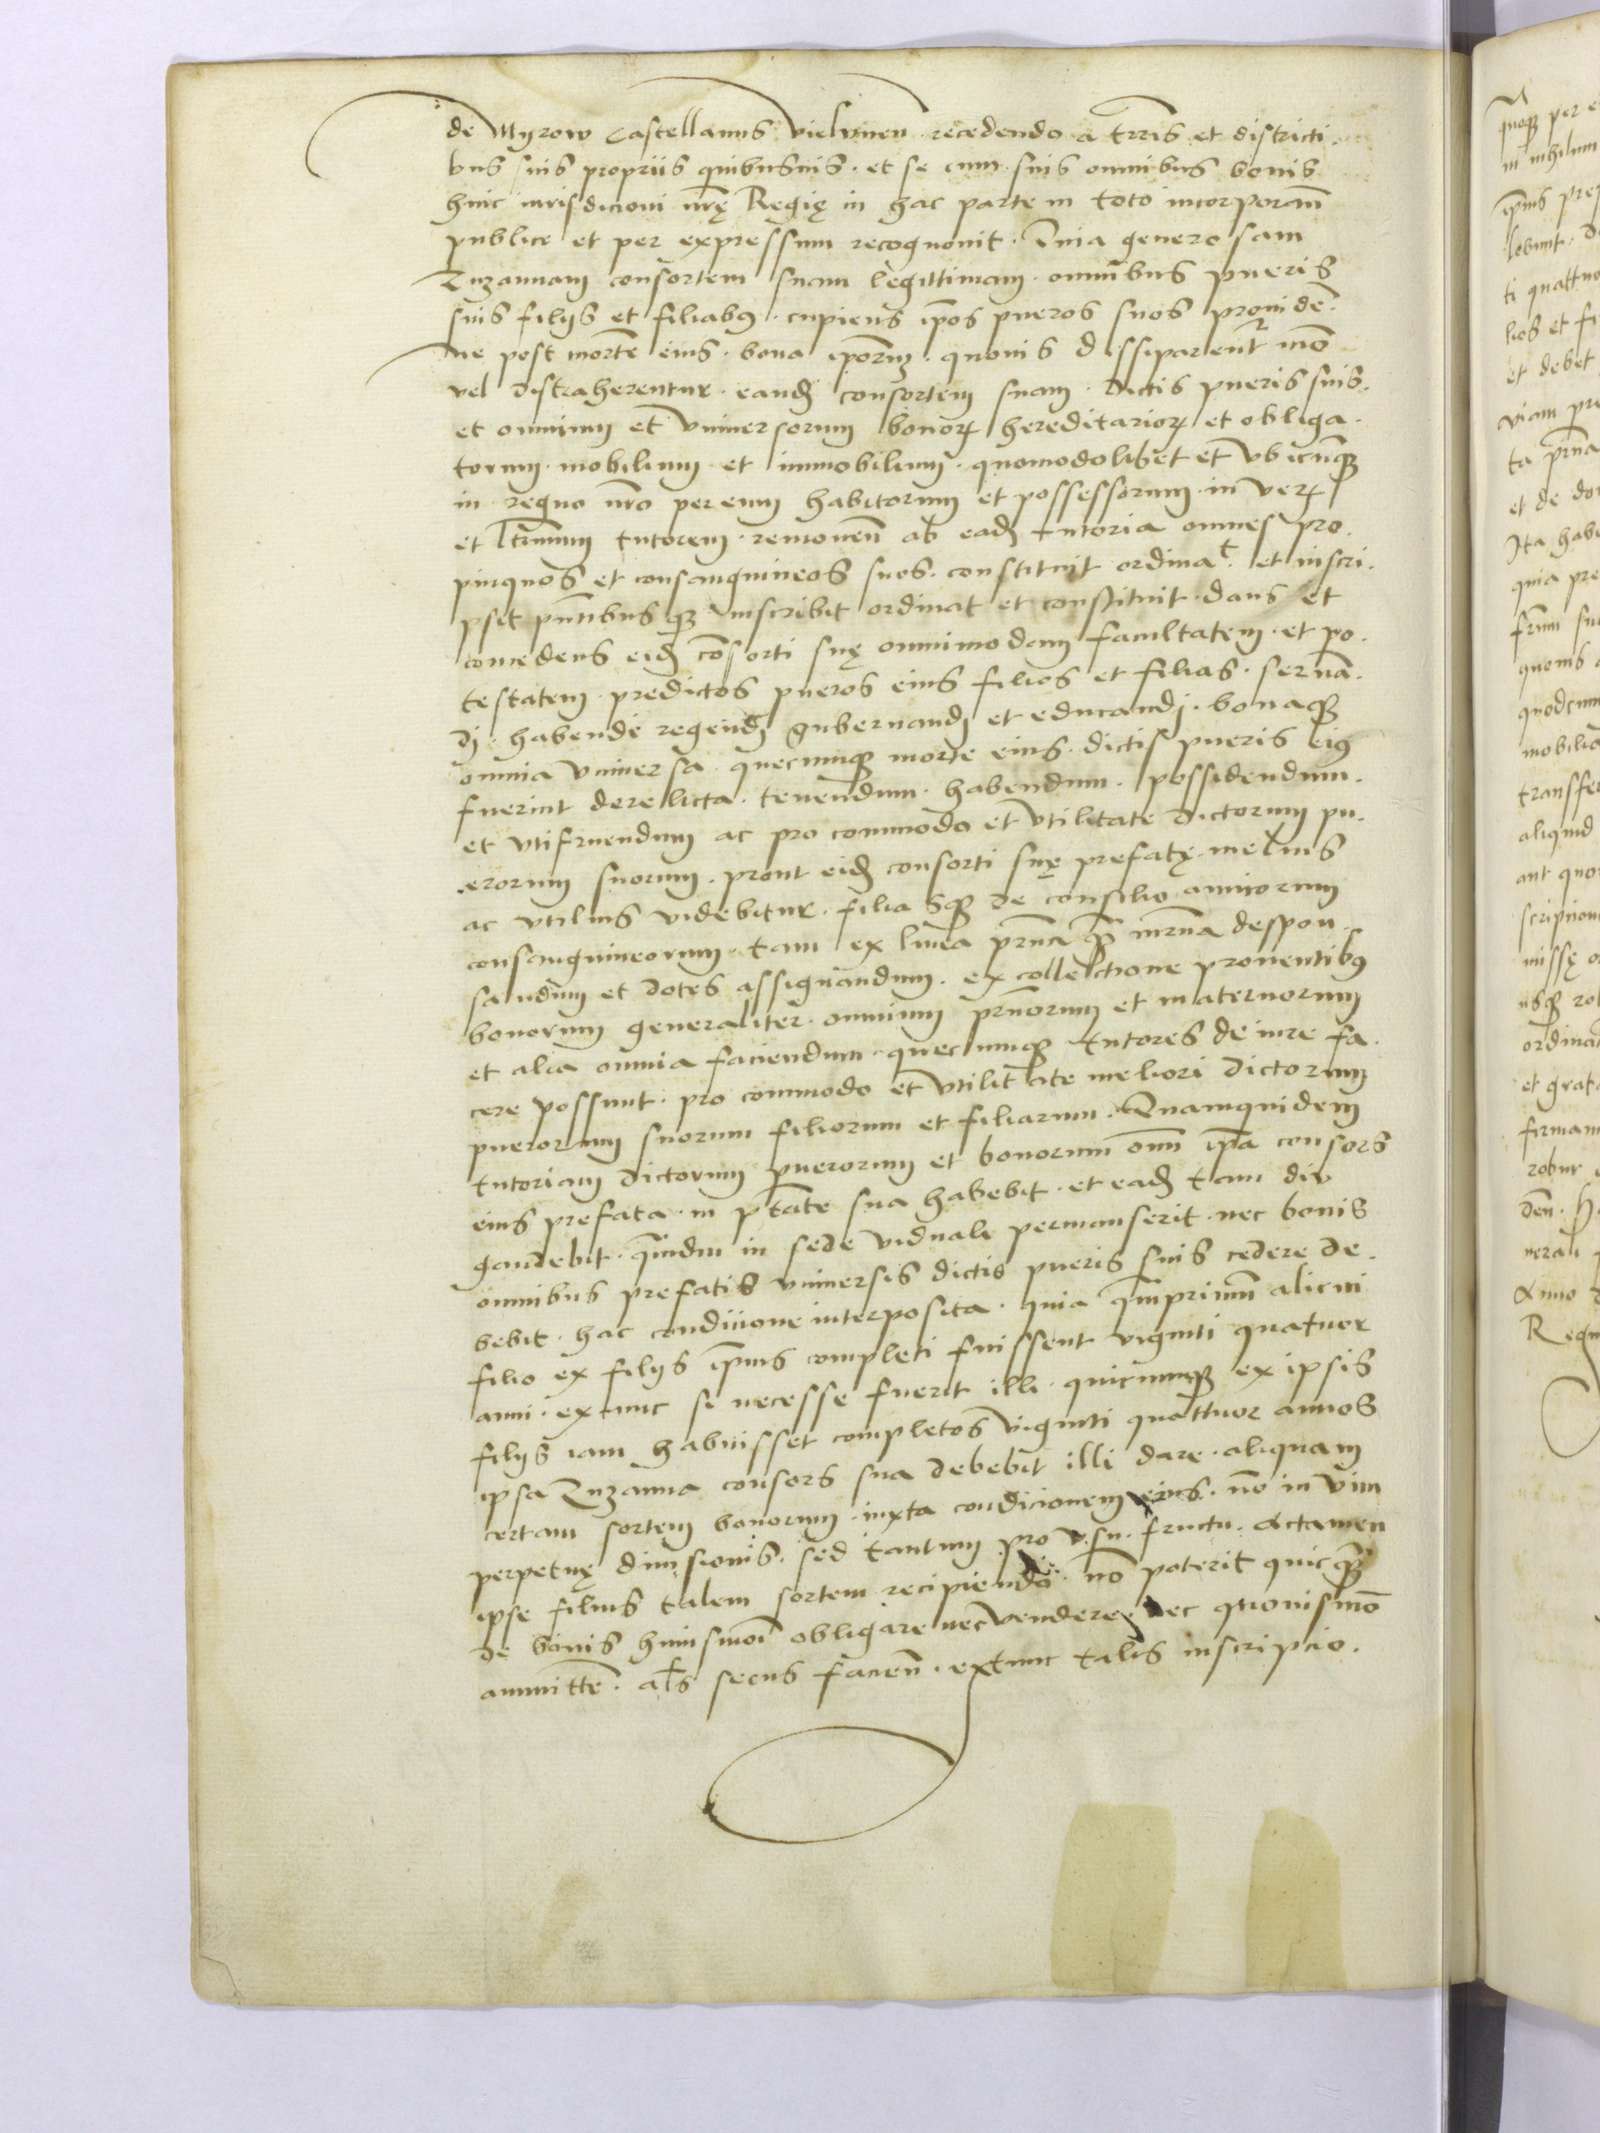 de Myrow Castellanus vielunen. recedendo a terris et districti.
bus suis propriis quibusuis. et se cum suis omnibus bonis
huic iurisdicioni nrę Regię in hac parte in toto incorporan̄
publice et per expressum recognouit. Quia generosam
Zuzannam consortem suam legittimam. omnibus pueris
suis filÿs et filiabꝰ. cupiens ip̄os pueros suos prouidē.
ne post mortē eius. bona ip̄orum. quouis dissiparent̃ mō
vel distraherentur. eandē consortem suam. dictis pueris suis.
et omnium et vniuersorum bonorꝝ hereditariorꝝ et obliga.
torum. mobilium et immobilium. quomodolibet et vbicūqꝫ
in regno nr̄o per eum habitorum et possessorum. in verꝝ
et ltīmum tutorem. remouen̄ ab eadē tutoria omnes pro.
pinquos et consanguineos suos. constituit ordinat. et inscri.
psit pn̄tibusqꝫ inscribit ordinat et constituit. dans et
concedens eidē cōsorti suę omnimodam facultatem. et po.
testatem. predictos pueros eius filios et filias. seruā.
dj. habende regendj gubernandj et educandj. bonaqꝫ
omnia vniuersa. quecumqꝫ morte eius. dictis pueris eiꝰ
fuerint derelicta. tenendum. habendum. possidendum.
et vtifruendum ac pro commodo et vtilitate dictorum pu.
erorum suorum. prout eidē consorti suę prefatę. melius
ac vtilius videbitur. filiasqꝫ de consilio amicorum
consanguineorum. tam ex linea pr̄na qꝫ mr̄na despon.
sandum et dotes assignandum. ex collectione prouentibꝰ
bonorum generaliter. omnium pr̄norum et maternorum
et alia omnia faciendum. quecumqꝫ tutores de iure fa.
cere possunt. pro commodo et vtilitate meliori dictorum
puerorum suorum filiorum et filiarum. Quamquidem
tutoriam dictorum puerorum et bonorum om̄ ip̄a consors
eius prefata. in ptāte sua habebit. et eadē tam div
gaudebit. quādiu in sede viduali permanserit. nec bonis
omnibus prefatis vniuersis dictis pueris suis cedere de.
bebit. hac condicione interposita. quia quāprimum alicui
filio ex filÿs ip̄ius completi fuissent viginti quatuor
anni. extunc si necesse fuerit illi. quicumqꝫ ex ipsis
filÿs iam habuisset completos viginti quattuor annos
ipsa Zuzanna consors sua debebit illi dare. aliquam
certam sortem bonorum. iuxta condicionem eius. nō in vim
perpetuę diuisionis. sed tantum pro vsu. fructu. Actamen
ipse filius talem sortem recipiendo. nō poterit quicqꝫ
de bonis huiusmōi obligare nec vendere. nec quouismō
ammittē. als secus facien̄. extunc talis inscripcio.